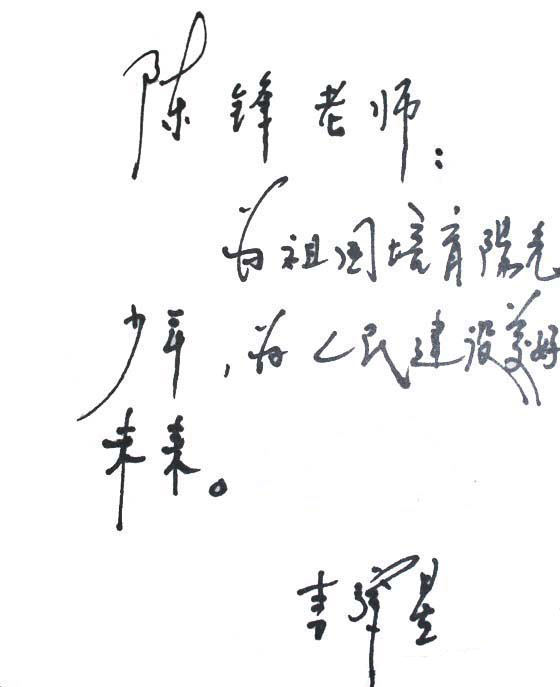 陈锋老师:
为祖国培育阳光
少年,为人民建设美好
未来。